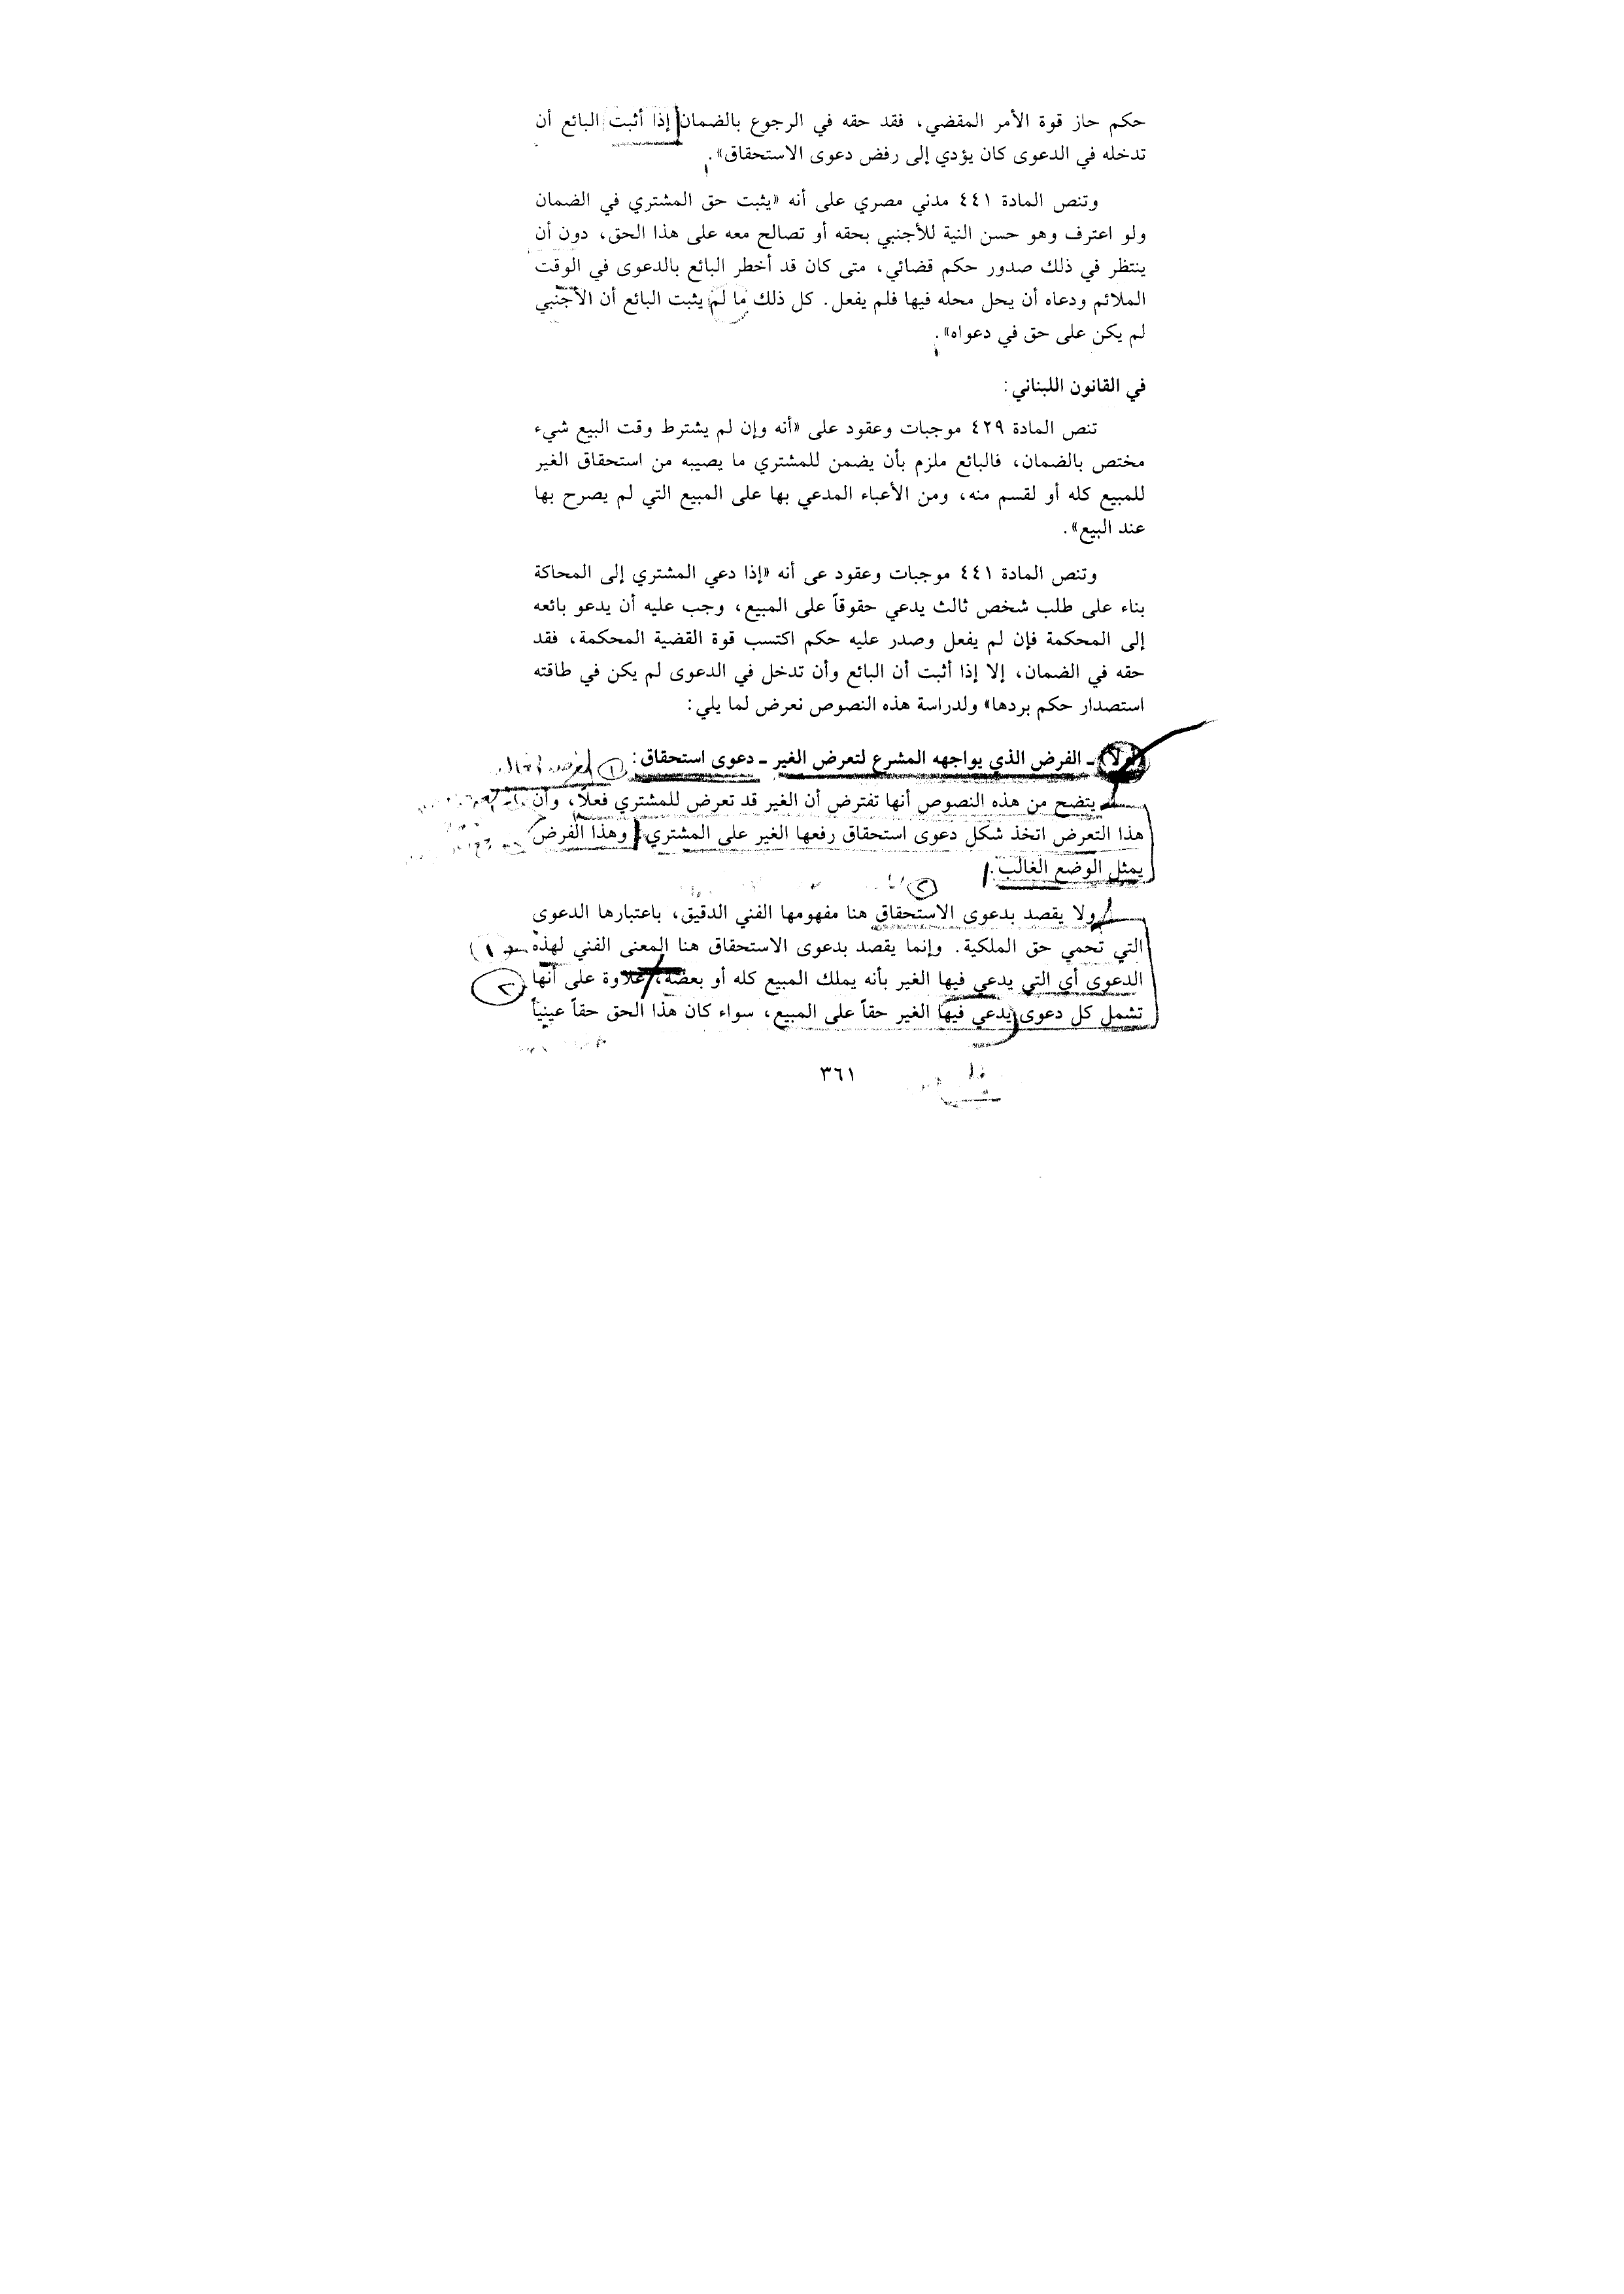 حكم حاز قوة الأمر المقضي، فقد حقه في الرجوع بالضمان إذا أثبت البائع أن
تدخله في الدعوى كان يؤدي إلى رفض دعوى الاستحقاق».
وتنص المادة ٤٤١ مدني مصري على أنه «يثبت حق المشتري في الضمان
ولو اعترف وهو حسن النية للأجنبي بحقه أو تصالح معه على هذا الحق، دون أن
ينتظر في ذلك صدور حكم قضائي، متى كان قد أخطر البائع بالدعوى في الوقت
الملائم ودعاه أن يحل محله فيها فلم يفعل. كل ذلك ما لم يثبت البائع أن الأجنبي
لم يكن على حق في دعواه».
في القانون اللبناني:
تنص المادة ٤٢٩ موجبات وعقود على «أنه وإن لم يشترط وقت البيع شيء
مختص بالضمان، فالبائع ملزم بأن يضمن للمشتري ما يصيبه من استحقاق الغير
للمبيع كله أو لقسم منه، ومن الأعباء المدعي بها على المبيع التي لم يصرح بها
عند البيع».
وتنص المادة ٤٤١ موجبات وعقود عى أنه «إذا دعي المشتري إلى المحاكة
بناء على طلب شخص ثالث يدعي حقوقاً على المبيع، وجب عليه أن يدعو بائعه
إلى المحكمة فإن لم يفعل وصدر عليه حكم اكتسب قوة القضية المحكمة، فقد
حقه في الضمان، إلا إذا أثبت أن البائع وأن تدخل في الدعوى لم يكن في طاقته
استصدار حكم بردها» ولدراسة هذه النصوص نعرض لما يلي:
أولاً ـ الفرض الذي يواجهه المشرع لتعرض الغير ـ دعوى استحقاق: ١
يتضح من هذه النصوص أنها تفترض أن الغير قد تعرض للمشتري فعلاً، وأن
هذا التعرض اتخذ شكل دعوى استحقاق رفعها الغير على المشتري، وهذا الفرض
يمثل الوضع الغالب.
٢
ولا يقصد بدعوى الاستحقاق هنا مفهومها الفني الدقيق، باعتبارها الدعوى
التي تحمي حق الملكية. وإنما يقصد بدعوى الاستحقاق هنا المعنى الفني لهذه (١)
الدعوى أي التي يدعي فيها الغير بأنه يملك المبيع كله أو بعضه، علاوة على أنها ٢
تشمل كل دعوى يدعي فيها الغير حقاً على المبيع، سواء كان هذا الحق حقاً عينياً
٣٦١